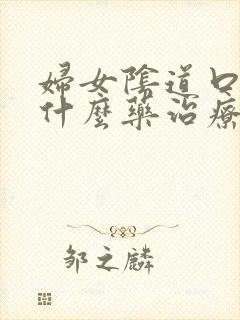 婦女陰道口
什麼藥治療
鄒之麟